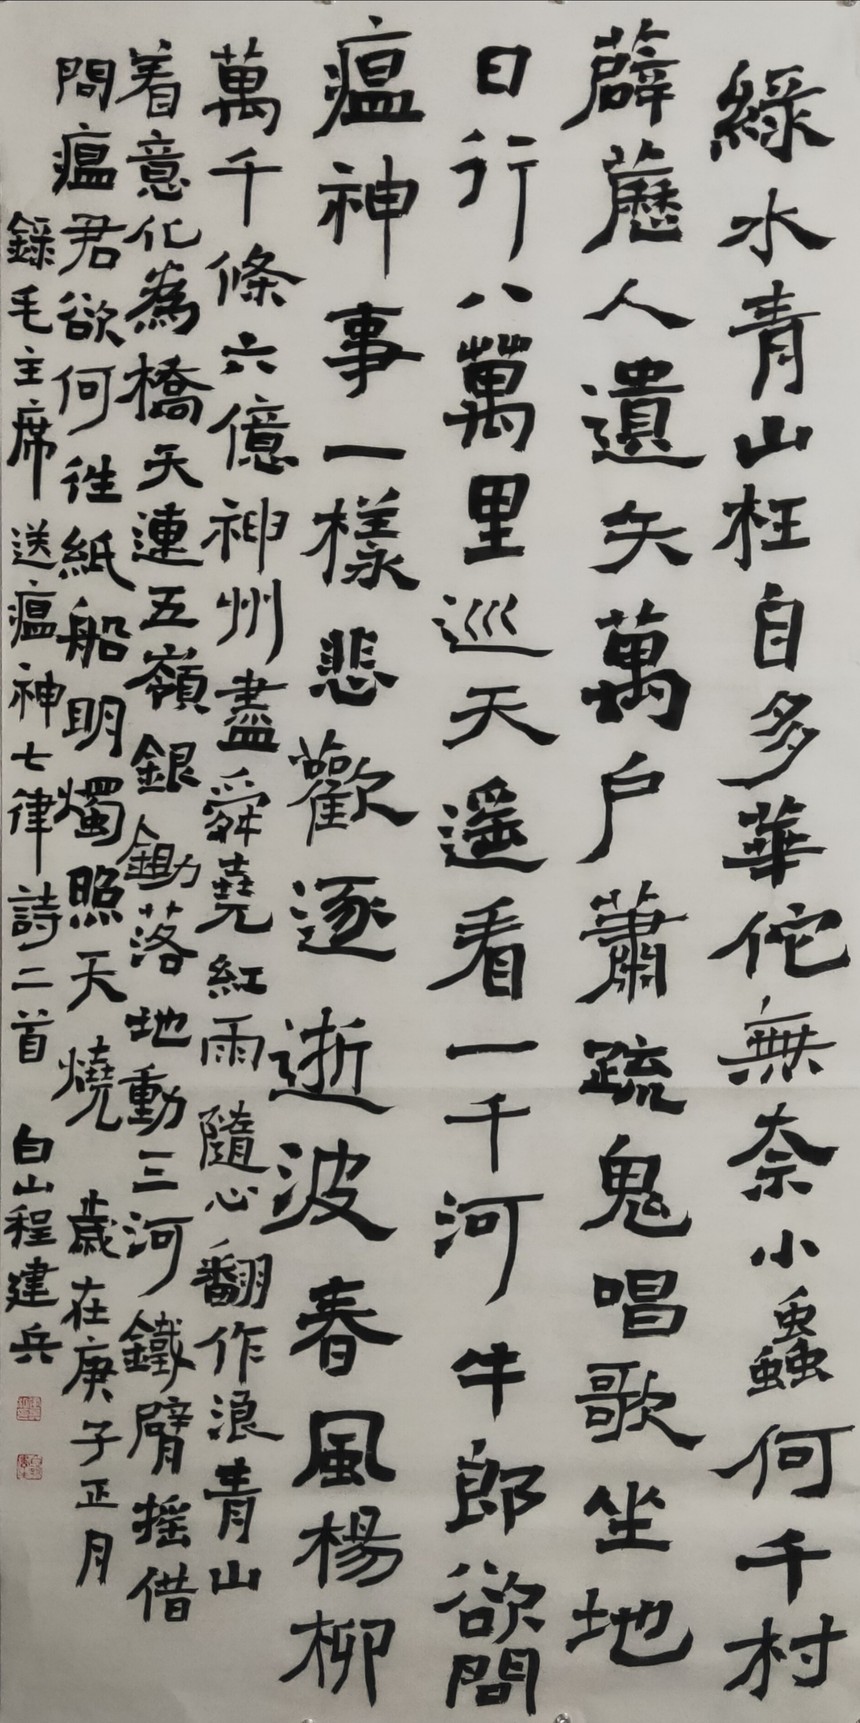 綠水青山枉自多華佗無奈小蟲何千村
薜藶人遺矢萬户蕭疏鬼唱歌坐地
日行八萬里巡天遥看一千河牛郎欲問
瘟神事一樣悲歡逐逝波春風楊柳
萬千條六億神州盡舜堯紅雨隨心翻作浪青山
着意化為橋天連五嶺銀鋤落地動三河鐵臂摇借
問瘟君欲何往紙船明燭照天燒 歲在庚子正月
錄毛主席送瘟神七律詩二首 白山程建兵